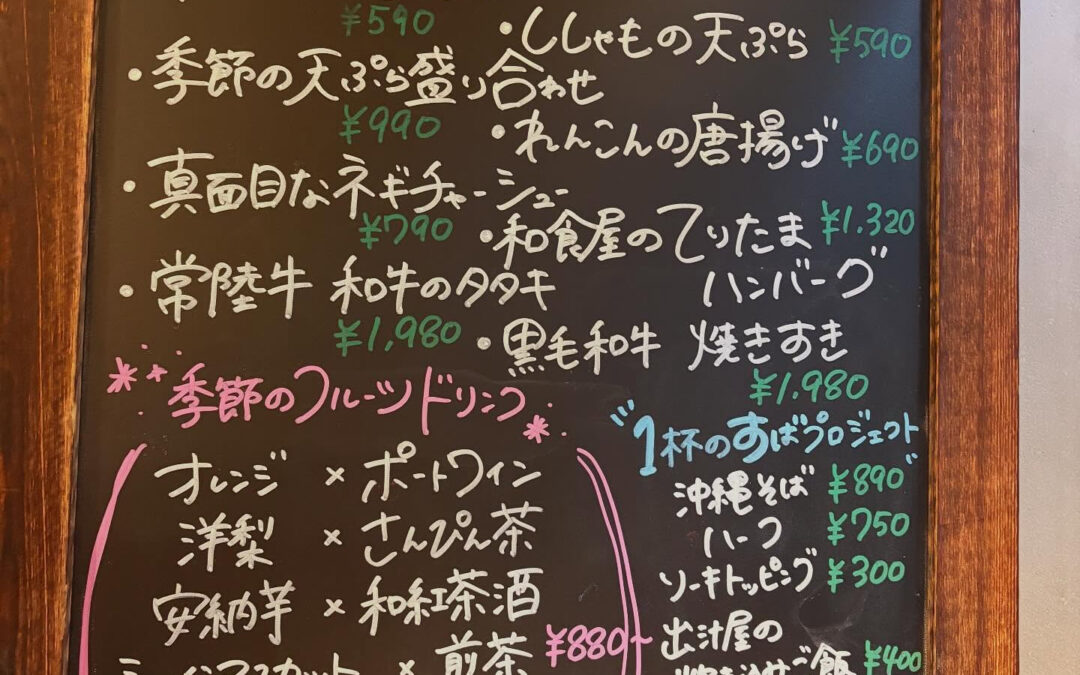 ¥590
・季節の天ぷら盛り合わせ
¥990
・真面目なネギチャーシュー
¥790
・常陸牛 和牛のタタキ
¥1,980
・ししゃもの天ぷら ¥590
・れんこんの唐揚げ ¥690
・和食屋のてりたま ¥1.320
ハンバーグ
・黒毛和牛 焼きすき
¥1.980
季節のフルーツドリンク
オレンジ × ポートワイン
洋梨 × さんぴん茶
安納芋 × 和紅茶酒
シャインマスカット × 煎茶
¥880~
"1杯のすばプロジェクト"
沖縄そば ¥890
ハーフ ¥750
ソーキトッピング ¥300
出汁屋の
ご飯 ¥400